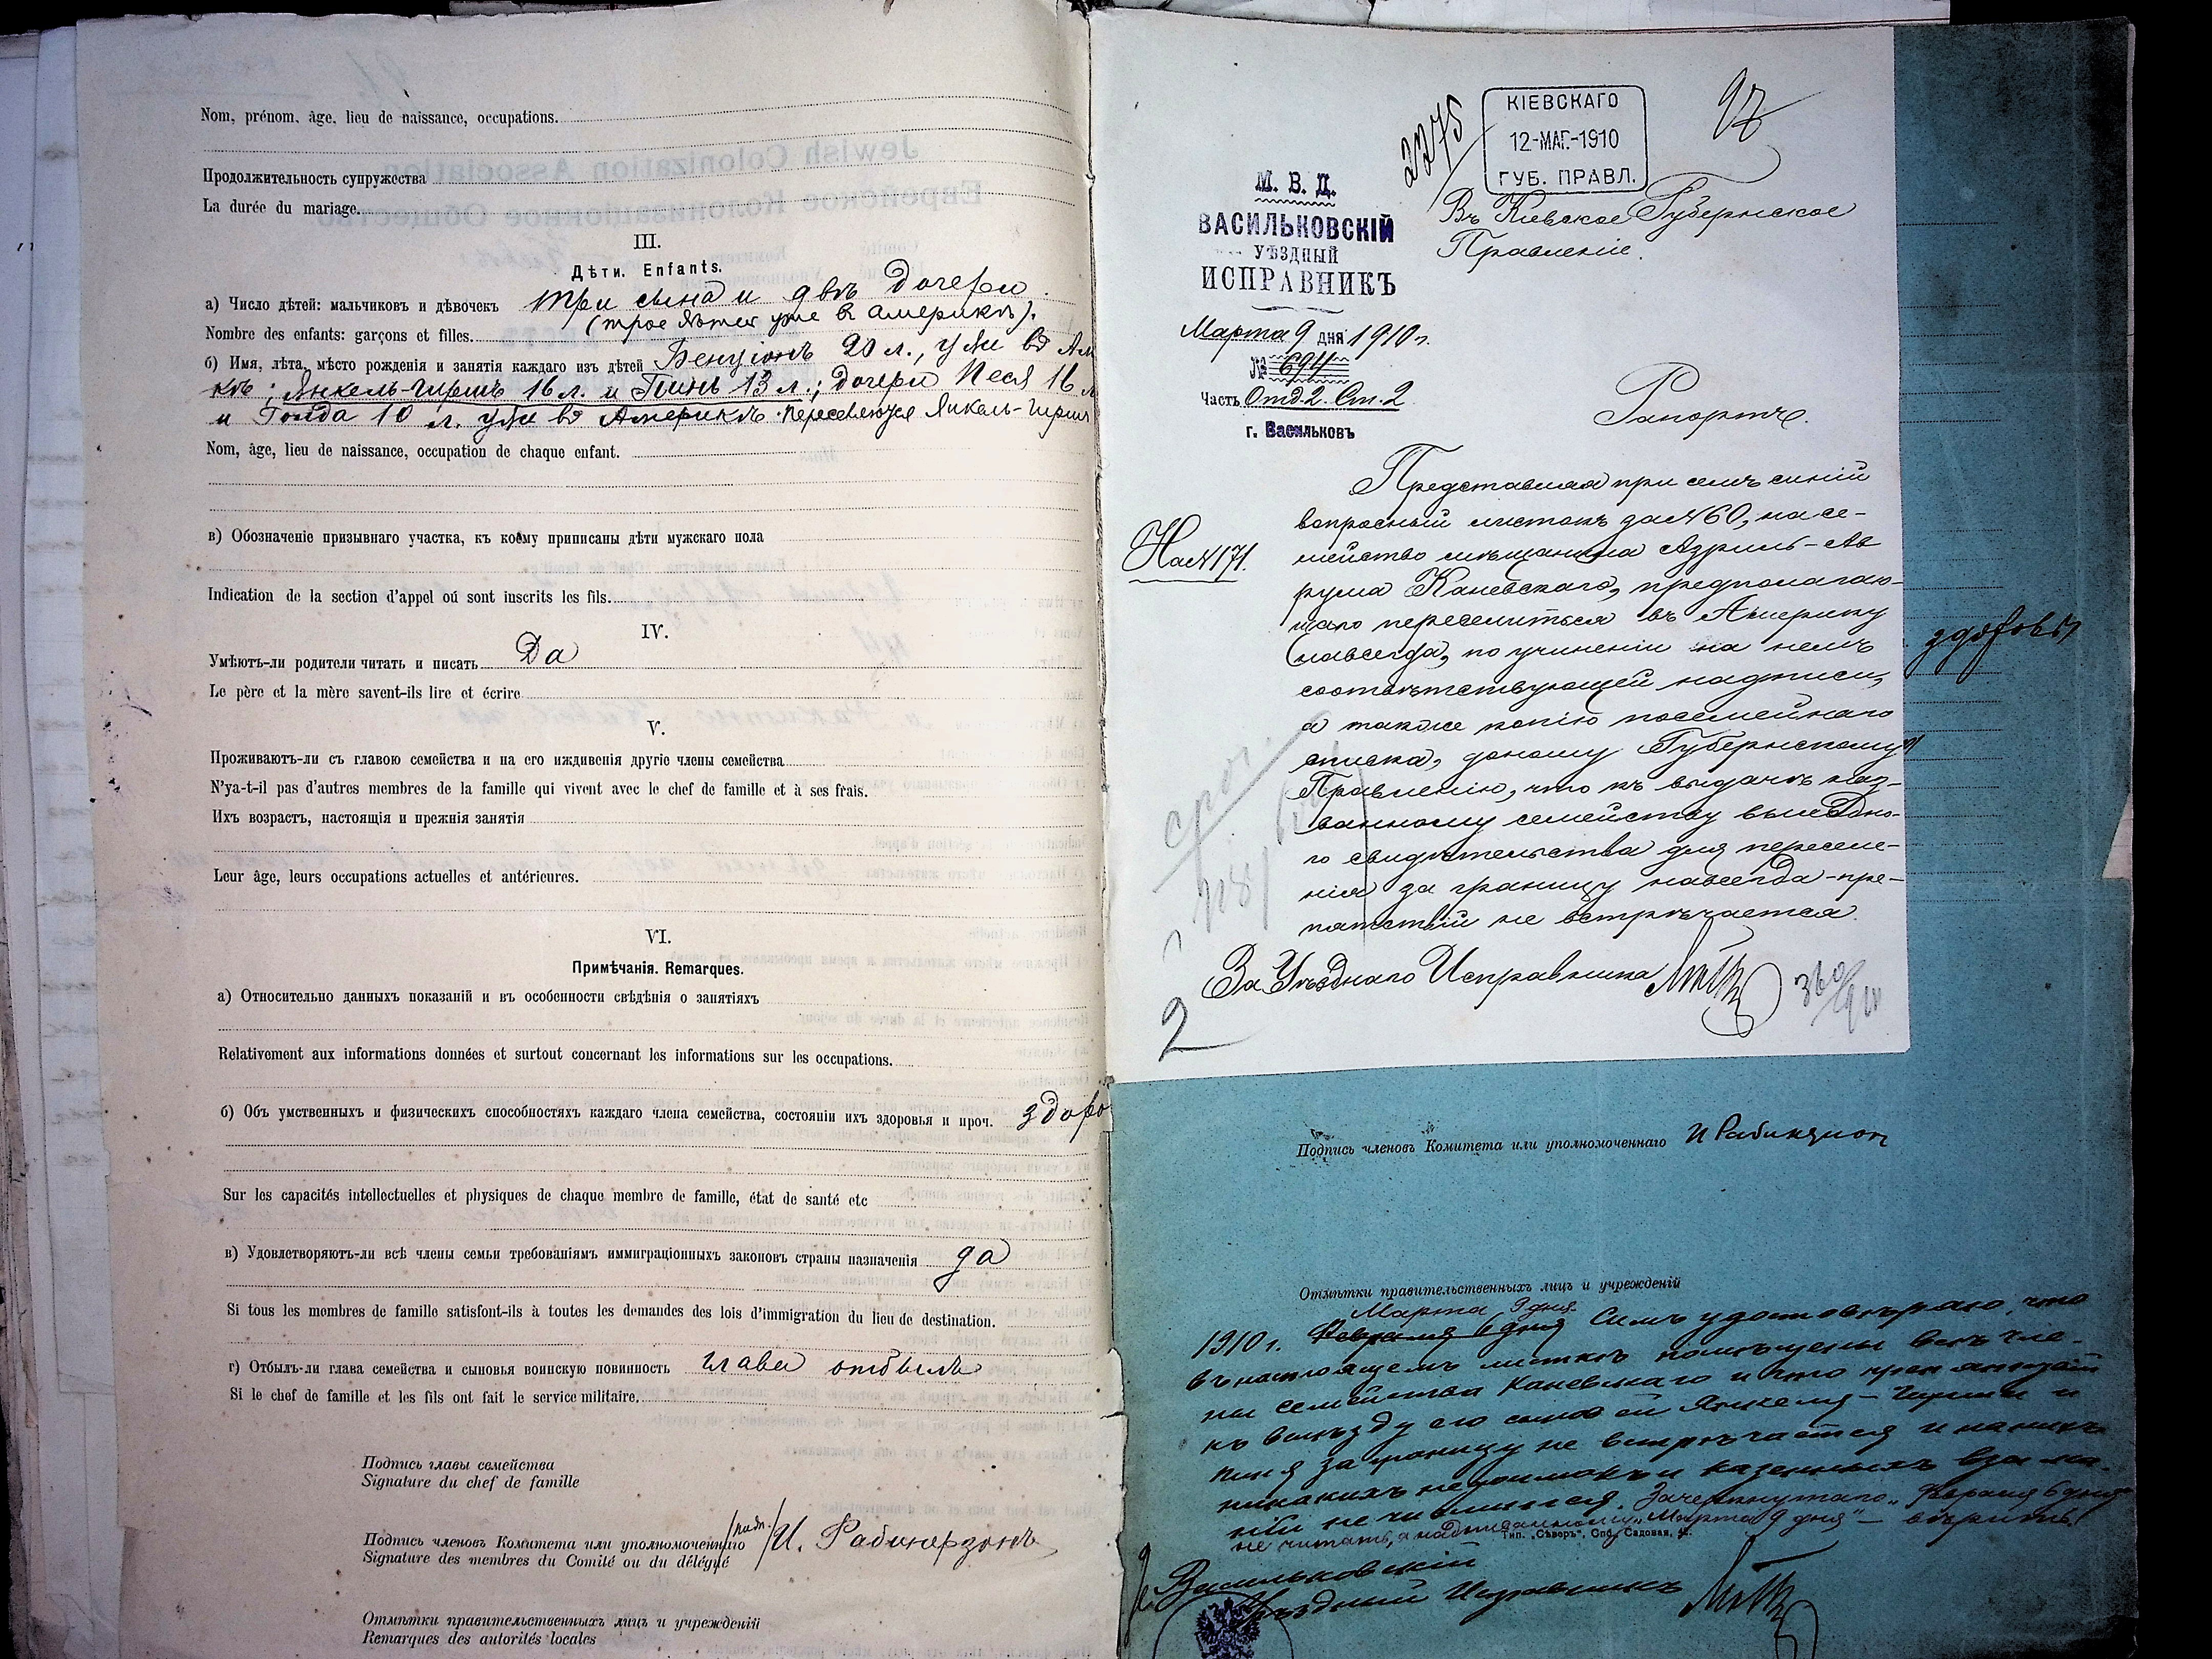 Nom, prénom, âge, lieu de naissance, occupations.
Продолжительность супружества
La durée du mariage.
III.
Дѣти. Enfants.
а) Число дѣтей: мальчиковъ и дѣвочекъ три сына и двѣ дочери.
(трое дѣтей уже в Америкѣ).
Nombre des enfants: garçons et filles.
б) Имя, лѣта, мѣсто рожденія и занятія каждаго изъ дѣтей Бенціонъ 20 л., уже въ Ам
кѣ; Янкель-Гершъ 16 л. и Пинь 13 л.; дочери Песя 16 л
и Голда 10 л. уже въ Америкѣ. Переселяются Янкель-Герш
Nom, âge, lieu de naissance, occupation de chaque enfant.
в) Обозначеніе призывнаго участка, къ коему приписаны дѣти мужскаго пола
Indication de la section d'appel oú sont inscrits les fils.
IV.
Умѣютъ-ли родители читать и писать Да
Le père et la mère savent-ils lire et écrire
V.
Проживаютъ-ли съ главою семейства и на его иждивенія другіе члены семейства
N'ya-t-il pas d'autres membres de la famille qui vivent avec le chef de famille et à ses frais.
Ихъ возрастъ, настоящія и прежнія занятія
Leur âge, leurs occupations actuelles et antérieures.
VI.
Примѣчанія. Remarques.
а) Относительно данныхъ показаній и въ особенности свѣдѣнія о занятіяхъ
Relativement aux informations données et surtout concernant les informations sur les occupations.
б) Объ умственныхъ и физическихъ способностяхъ каждаго члена семейства, состояніи ихъ здоровья и проч. здоро
Sur les capacités intellectuelles et physiques de chaque membre de famille, état de santé etc
в) Удовлетворяютъ-ли всѣ члены семьи требованіямъ иммиграціонныхъ законовъ страны назначенія да
Si tous les membres de famille satisfont-ils à toutes les demandes des lois d'immigration du lieu de destination.
г) Отбылъ-ли глава семейства и сыновья воинскую повинность глава отбылъ
Si le chef de famille et les fils ont fait le service militaire.
Подпись главы семейства
Signature du chef de famille
Подпись членовъ Комитета или уполномоченнаго /подп./ И. Рабинерзонъ
Signature des membres du Comité ou du délégué
Отмѣтки правительственныхъ лицъ и учрежденій
Remarques des autorités locales
2275
КІЕВСКАГО
12-МАР.-1910
ГУБ. ПРАВЛ.
97
М. В. Д.
ВАСИЛЬКОВСКІЙ
УѢЗДНЫЙ
ИСПРАВНИКЪ
Марта 9 дня 1910 г.
№ 694
Часть Отд. 2. Ст. 2
г. Васильковъ
Въ Кіевское Губернское
Правленіе.
Рапортъ.
На № 171.
Представляя при семъ синій
вопросный листокъ за № 60, на се-
мейство мѣщанина Азриль-Ав
рума Каневскаго, предполагаю-
щаго переселиться въ Америку
навсегда, по учиненіи на немъ
соотвѣтствующей надписи,
а также копію посемейнаго
списка, доношу Губернскому
Правленію, что къ выдачѣ наз-
ванному семейству выѣздно-
го свидѣтельства для переселе-
нія за границу навсегда - пре-
пятствій не встрѣчается.
За Уѣзднаго Исправника
2
здоровы
Подпись членовъ Комитета или уполномоченнаго И Рабинерзон
Отмѣтки правительственныхъ лицъ и учрежденій
Марта 9 дня
1910 г. Февраля 6 дня Симъ удостовѣряю, что
въ настоящемъ листкѣ помѣщены всѣ чле-
ны семейства Каневскаго и что препятствій
къ выѣзду его сыновей Янкеля-Герша и
Пиня за границу не встрѣчается и на нихъ
никакихъ недоимокъ и казенныхъ взыска-
ній не числится. Зачеркнутаго „Февраля 6 дня“
не читать, а надписанному „Марта 9 дня“ - вѣрить.
Тип. „Сѣверъ“, Спб. Садовая,
Васильковскій
Уѣздный Исправникъ